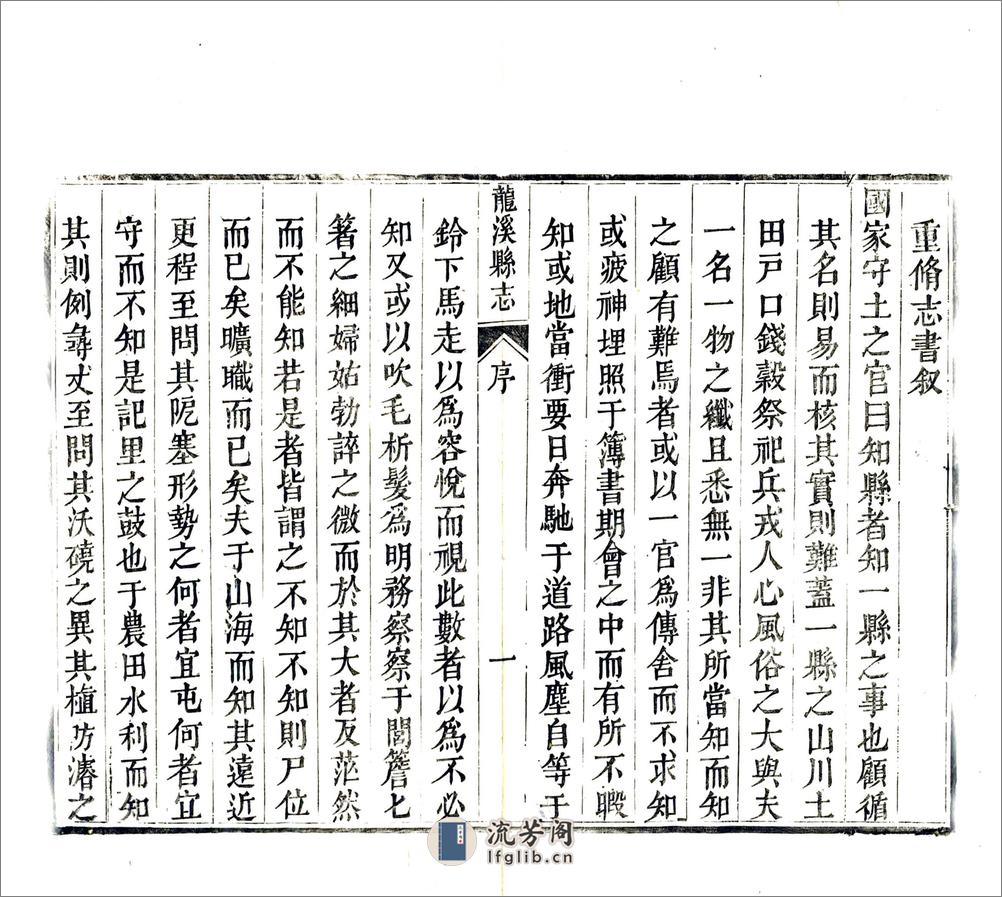 重脩志書叙
國家守土之官曰知縣者知一縣之事也顧循
其名則易而核其實則難蓋一縣之山川土
田戸口錢穀祭祀兵戎人心風俗之大與夫
一名一物之纖且悉無一非其所當知而知
之顧有難焉者或以一官爲傳舍而不求知
或疲神埋照于簿書期會之中而有所不暇
知或地當衝要日奔馳于道路風塵自等于
龍溪縣志
序
一
鈴下馬走以爲容悅而視此數者以爲不必
知又或以吹毛析髮爲明務察察于閭簷匕
箸之細婦姑勃谇之微而於其大者反茫然
而不能知若是者皆謂之不知不知則尸位
而已矣曠職而已矣夫于山海而知其遠近
更程至問其阨塞形勢之何者宜屯何者宜
守而不知是記里之鼓也于農田水利而知
其則例彝丈至問其沃磽之異其植坊濬之
流芳阁
lfglib.cn